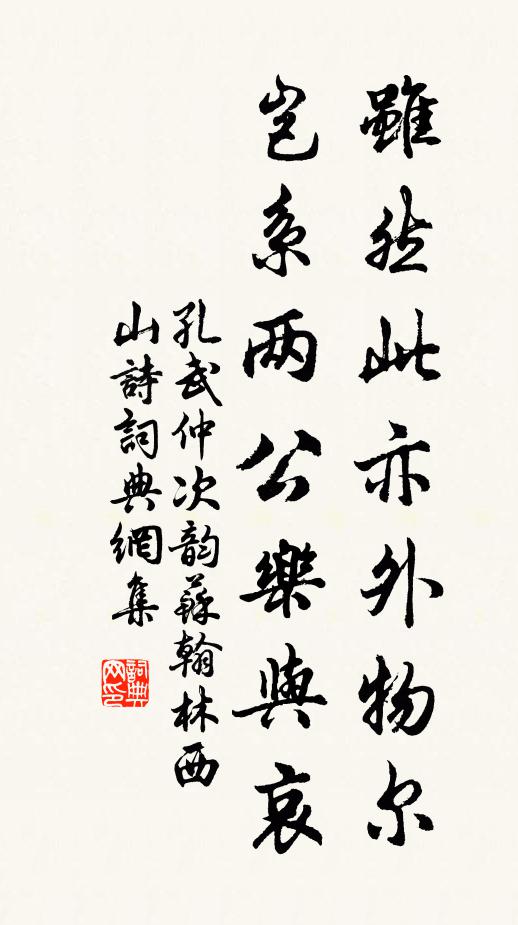 雖然此亦外物尔
岂系两公樂與哀
孔武仲次韵蘇翰林西
山詩詞典網集
詞典网印